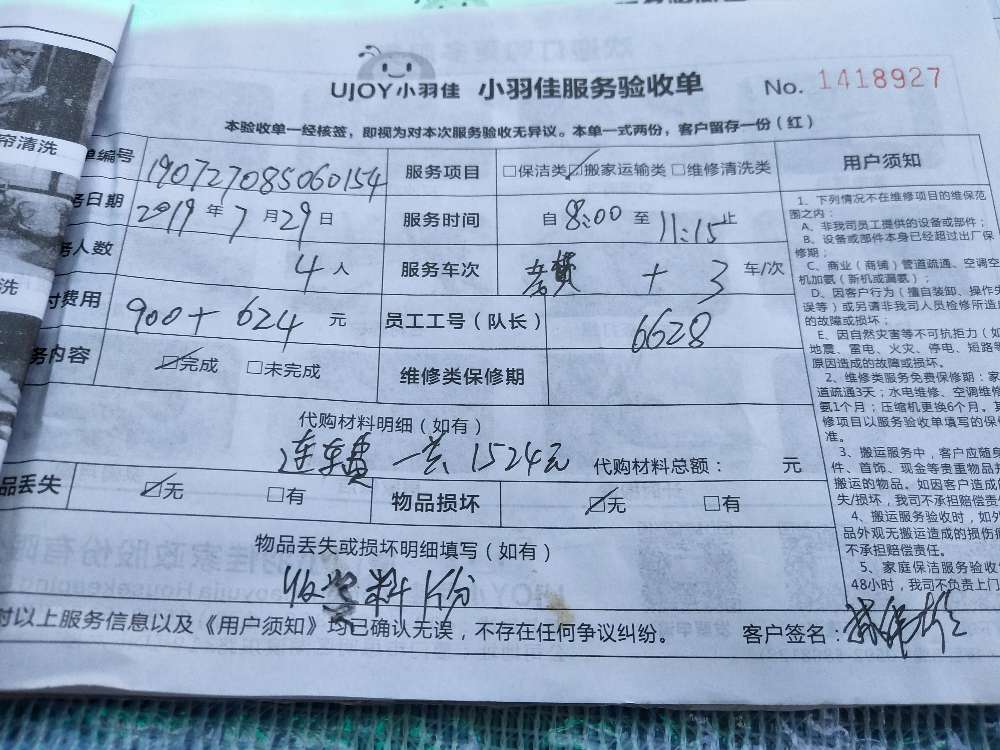 UJOY小羽佳 小羽佳服务验收单 No. 1418927
本验收单一经核签，即视为对本次服务验收无异议。本单一式两份，客户留存一份（红）
帘清洗
单编号 190727085060154 服务项目 □保洁类 ☑搬家运输类 □维修清洗类 用户须知
务日期 2019 年 7 月 29 日 服务时间 自 8:00 至 11:15 止
务人数 4 人 服务车次 + 3 车/次
洗
付费用 900+624 元 员工工号（队长） 6628
务内容 ☑完成 □未完成 维修类保修期
代购材料明细（如有）
连车费 一共 1524元 代购材料总额： 元
品丢失 ☑无 □有 物品损坏 ☑无 □有
物品丢失或损坏明细填写（如有）
料 份
对以上服务信息以及《用户须知》均已确认无误，不存在任何争议纠纷。 客户签名：
1、下列情况不在维修项目的维保范
围之内：
A、非我司员工提供的设备或部件；
B、设备或部件本身已经超过出厂保
修期；
C、商业（商铺）管道疏通、空调空
机加氨（新机或漏氨）；
D、因客户行为（擅自装卸、操作失
误等）或另请非我司人员检修所造成
的故障或损坏；
E、因自然灾害等不可抗拒力（如
地震、雷电、火灾、停电、短路等
原因造成的故障或损坏。
2、维修类服务免费保修期：家
道疏通3天；水电维修、空调维修
氨1个月；压缩机更换6个月。其
修项目以服务验收单填写的保修
准。
3、搬运服务中，客户应随身
件、首饰、现金等贵重物品并
搬运的物品。如因客户造成的
失/损坏，我司不承担赔偿责
4、搬运服务验收时，如外
品外观无搬运造成的损伤痕
不承担赔偿责任。
5、家庭保洁服务验收
48小时，我司不负责上门